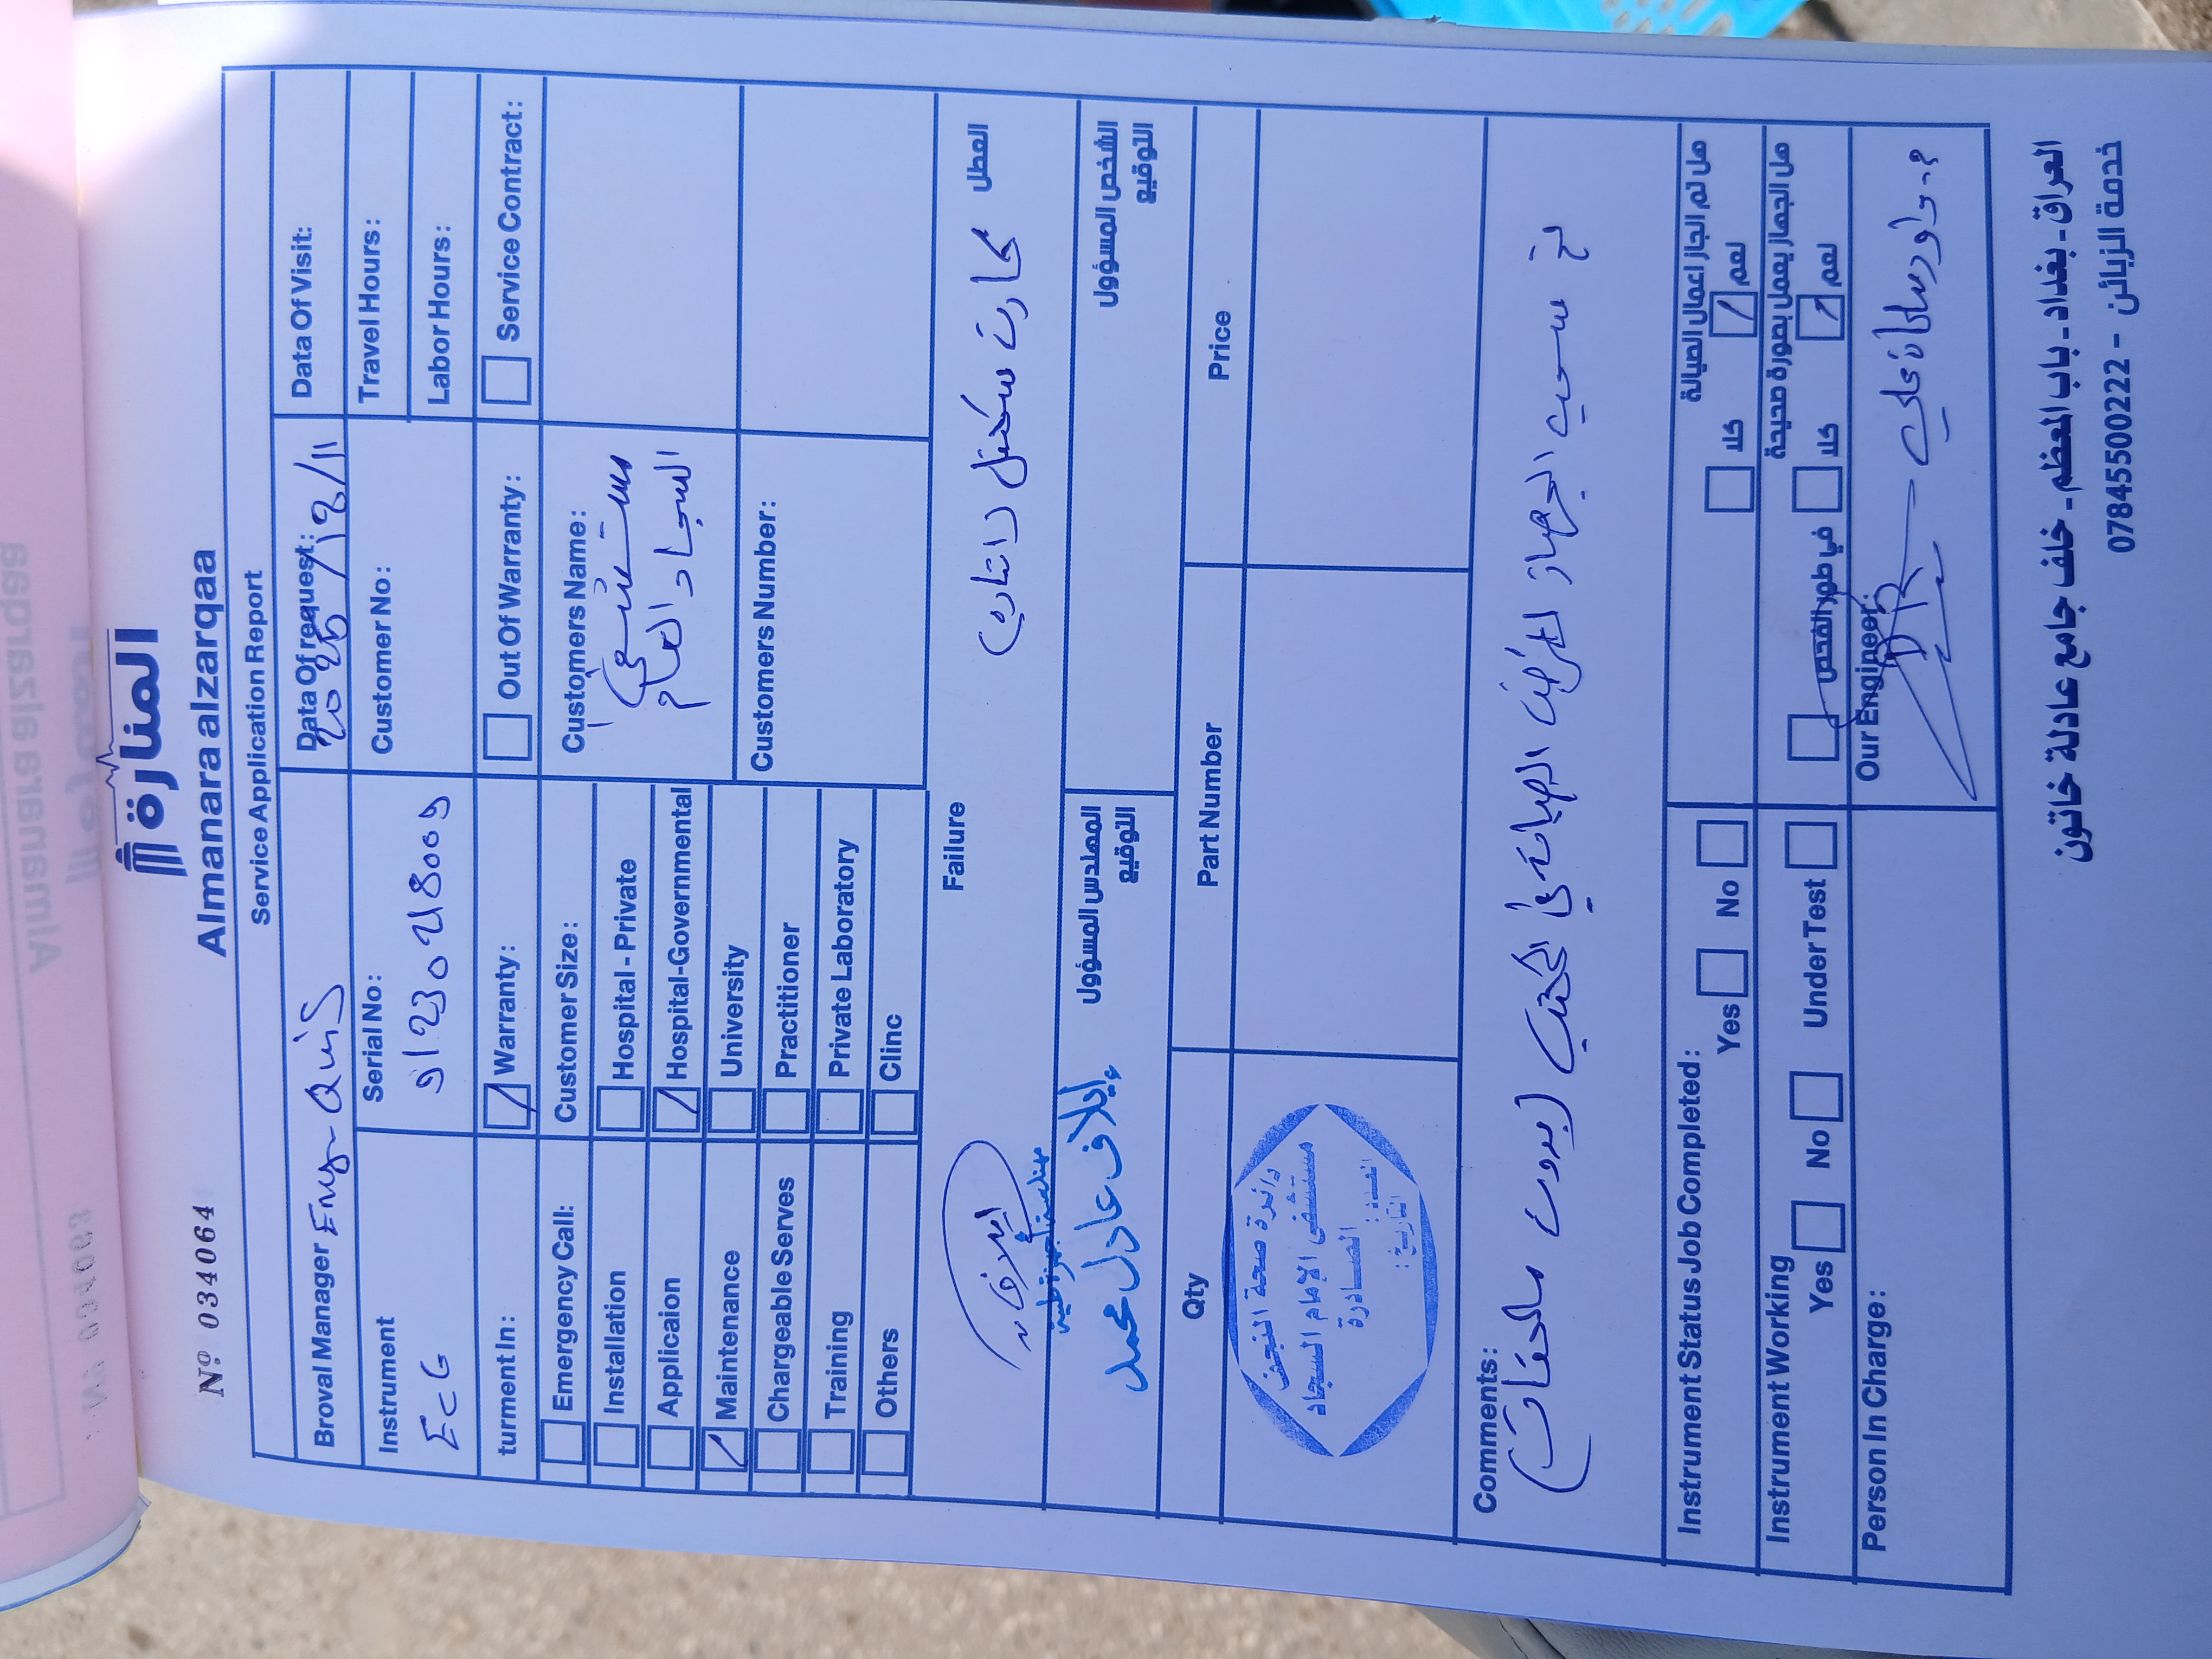 المنارة
Almanara alzarqaa
Nº 034064
Service Application Report
Broval Manager Eng- Qais
Data Of request: 2025/12/11
Data Of Visit:
Instrument
ECG
Serial No:
Customer No:
Travel Hours:
Labor Hours:
turment In:
Warranty:
Out Of Warranty:
Service Contract:
Emergency Call:
Installation
Applicaion
Maintenance
Chargeable Serves
Training
Others
Customer Size:
Hospital - Private
Hospital-Governmental
University
Practitioner
Private Laboratory
Clinc
Customers Name:
مستشفى
السجاد العام
Customers Number:
Failure
العطل
كارت
المهندس المسؤول
التوقيع
إيلاف عادل محمد
الشخص المسؤول
التوقيع
Qty
Part Number
Price
دائرة صحة النجف
مستشفى الإمام السجاد
الصادرة
العدد:
التاريخ:
Comments:
تم سحب الجهاز لغرض الصيانة في المكتب (بدون ملحقات)
Instrument Status Job Completed:
Yes
No
هل تم انجاز اعمال الصيانة
كلا
نعم
Instrument Working
Yes
No
Under Test
هل الجهاز يعمل بصورة صحيحة
في طور الفحص
كلا
نعم
Person In Charge:
Our Engineer:
العراق - بغداد - باب المعظم - خلف جامع عادلة خاتون
خدمة الزبائن - 07845500222